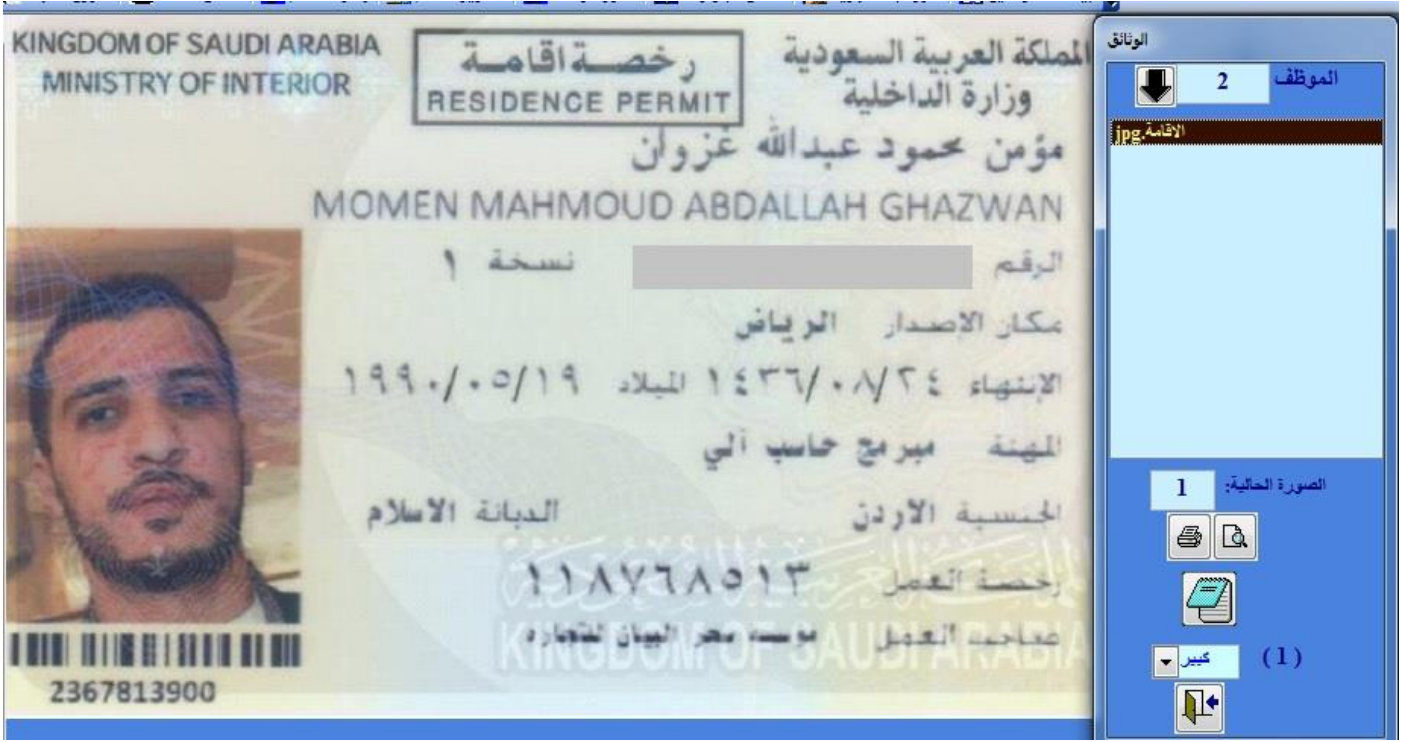 KINGDOM OF SAUDI ARABIA
MINISTRY OF INTERIOR
رخصة اقامة
RESIDENCE PERMIT
المملكة العربية السعودية
وزارة الداخلية
مؤمن محمود عبدالله غزوان
MOMEN MAHMOUD ABDALLAH GHAZWAN
الرقم نسخة ١
مكان الاصدار الرياض
الإنتهاء ١٤٣٦/٠٨/٢٤ الميلاد ١٩٩٠/٠٥/١٩
المهنة مبرمج حاسب آلي
الجنسية الاردن الديانة الاسلام
رخصة العمل ١١٨٧٦٨٥١٣
صاحب العمل موسسه سحر البيان للتجاره
المملكة العربية السعودية
KINGDOM OF SAUDI ARABIA
2367813900
الوثائق
الموظف 2
الاقامة.jpg
الصورة الحالية: 1
(1) كبير